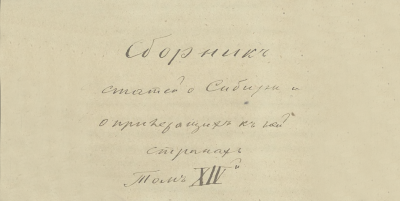 Сборникъ
статей о Сибири и
о прилежащихъ къ ней
странахъ
Томъ XIV й